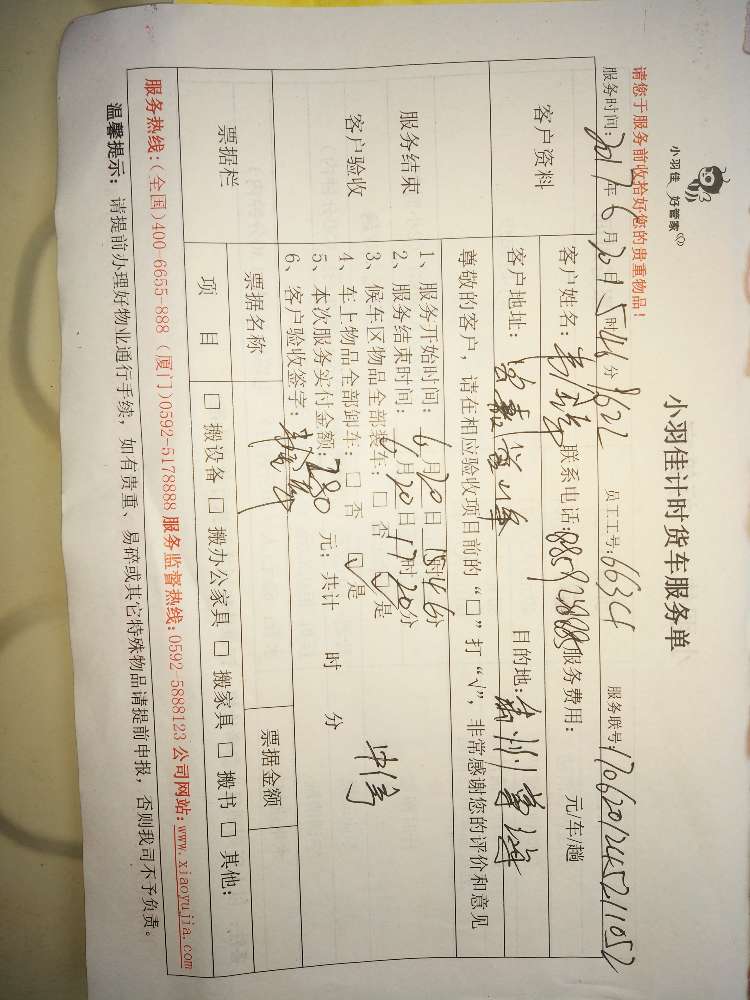 小羽佳 好管家
小羽佳计时货车服务单
请您于服务前收拾好您的贵重物品!
服务时间: 2017年6月20日15时46分 员工工号: 6634 服务联号:
客户资料
客户姓名: 联系电话: 服务费用: 元/车/趟
客户地址: 目的地:
尊敬的客户,请在相应验收项目前的“□”打“√”,非常感谢您的评价和意见
服务结束
客户验收
1、服务开始时间: 6月20日15时46分
2、服务结束时间: 6月20日17时20分
3、候车区物品全部装车: □ 否 ☑ 是
4、车上物品全部卸车: □ 否 ☑ 是
5、本次服务实付金额: 280 元; 共计 时 分
6、客户验收签字:
票据栏
票据名称 票据金额
项 目 □ 搬设备 □ 搬办公家具 □ 搬家具 □ 搬书 □ 其他:
服务热线:(全国)400-6655-888 (厦门)0592-5178888 服务监督热线:0592-5888123 公司网站:www.xiaoyujia.com
温馨提示: 请提前办理好物业通行手续,如有贵重、易碎或其它特殊物品请提前申报,否则我司不予负责。